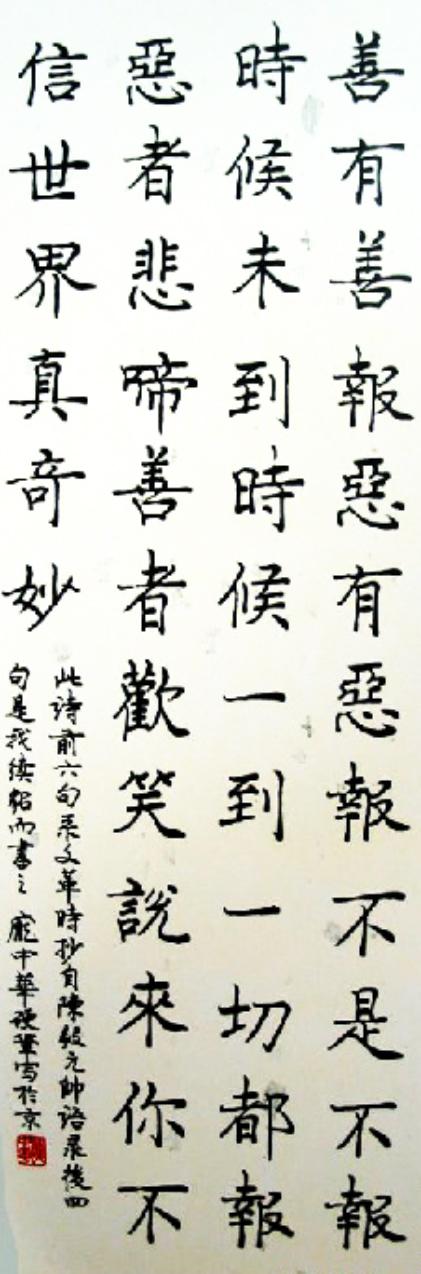 善有善報惡有惡報不是不報
時候未到時候一到一切都報
惡者悲啼善者歡笑說來你不
信世界真奇妙
此诗前六句系文革時抄自陳毅元帅语录後四
句是我续貂而書之 龐中華硬筆写於京